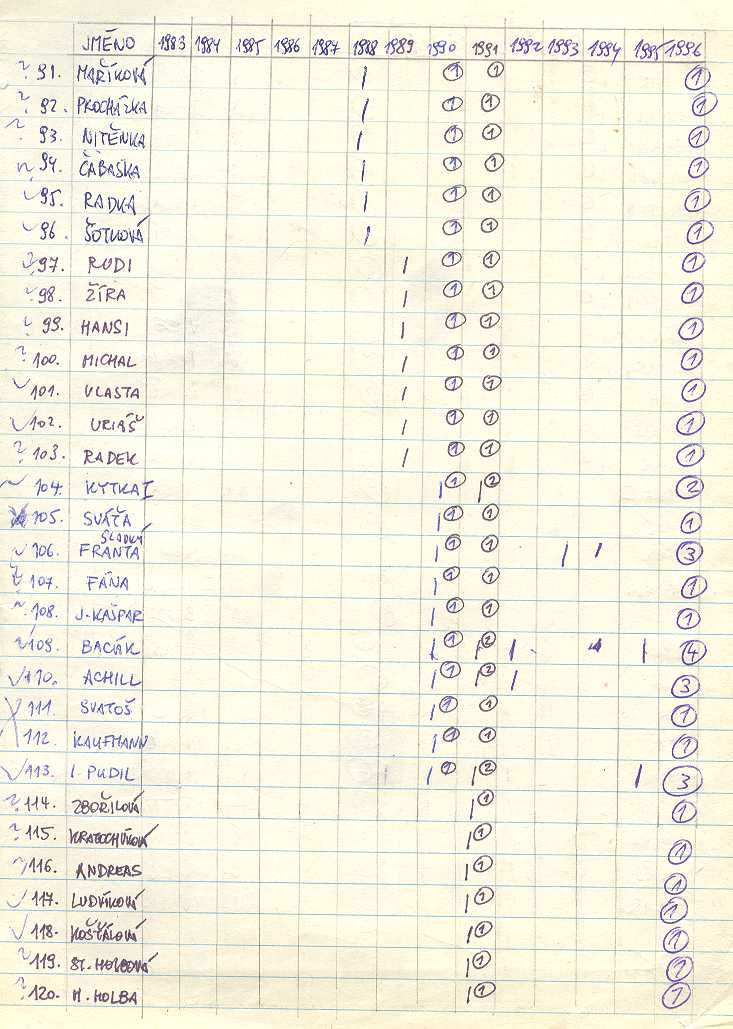 JMÉNO 1983 1984 1985 1986 1987 1988 1989 1990 1991 1992 1993 1994 1995 1996
? 91. MAŘÍKOVÁ | ① ① ①
? 92. PROCHÁZKA | ① ① ①
93. NITĚNKA | ① ① ①
94. ČABAŠKA | ① ① ①
✓ 95. RADKA | ① ① ①
✓ 96. ŠOTKOVÁ | ① ① ①
? 97. RUDI | ① ① ①
? 98. ŽÍRA | ① ① ①
? 99. HANSI | ① ① ①
? 100. MICHAL | ① ① ①
✓ 101. VLASTA | ① ① ①
✓ 102. URIÁŠ | ① ① ①
? 103. RADEK | ① ① ①
104. KYTKA I | ① | ② ②
105. SVÁŤA | ① ① ①
SLADKÝ
✓ 106. FRANTA | ① ① | | ③
? 107. FÁNA | ① ① ①
108. J. KAŠPAR | ① ① ①
✓ 109. BACÁK | ① | ② | | ④
✓ 110. ACHILL | ① | ② | ③
111. SVATOŠ | ① ① ①
112. KAUFMANN | ① ① ①
✓ 113. I. PUDIL | ① | ② | ③
? 114. ZBOŘILOVÁ | ① ①
? 115. KRATOCHVÍLOVÁ | ① ①
116. ANDREAS | ① ①
✓ 117. LUDVÍKOVÁ | ① ①
✓ 118. KOŠŤÁLOVÁ | ① ①
? 119. ST. HOLBOVÁ | ① ①
? 120. M. HOLBA | ① ①